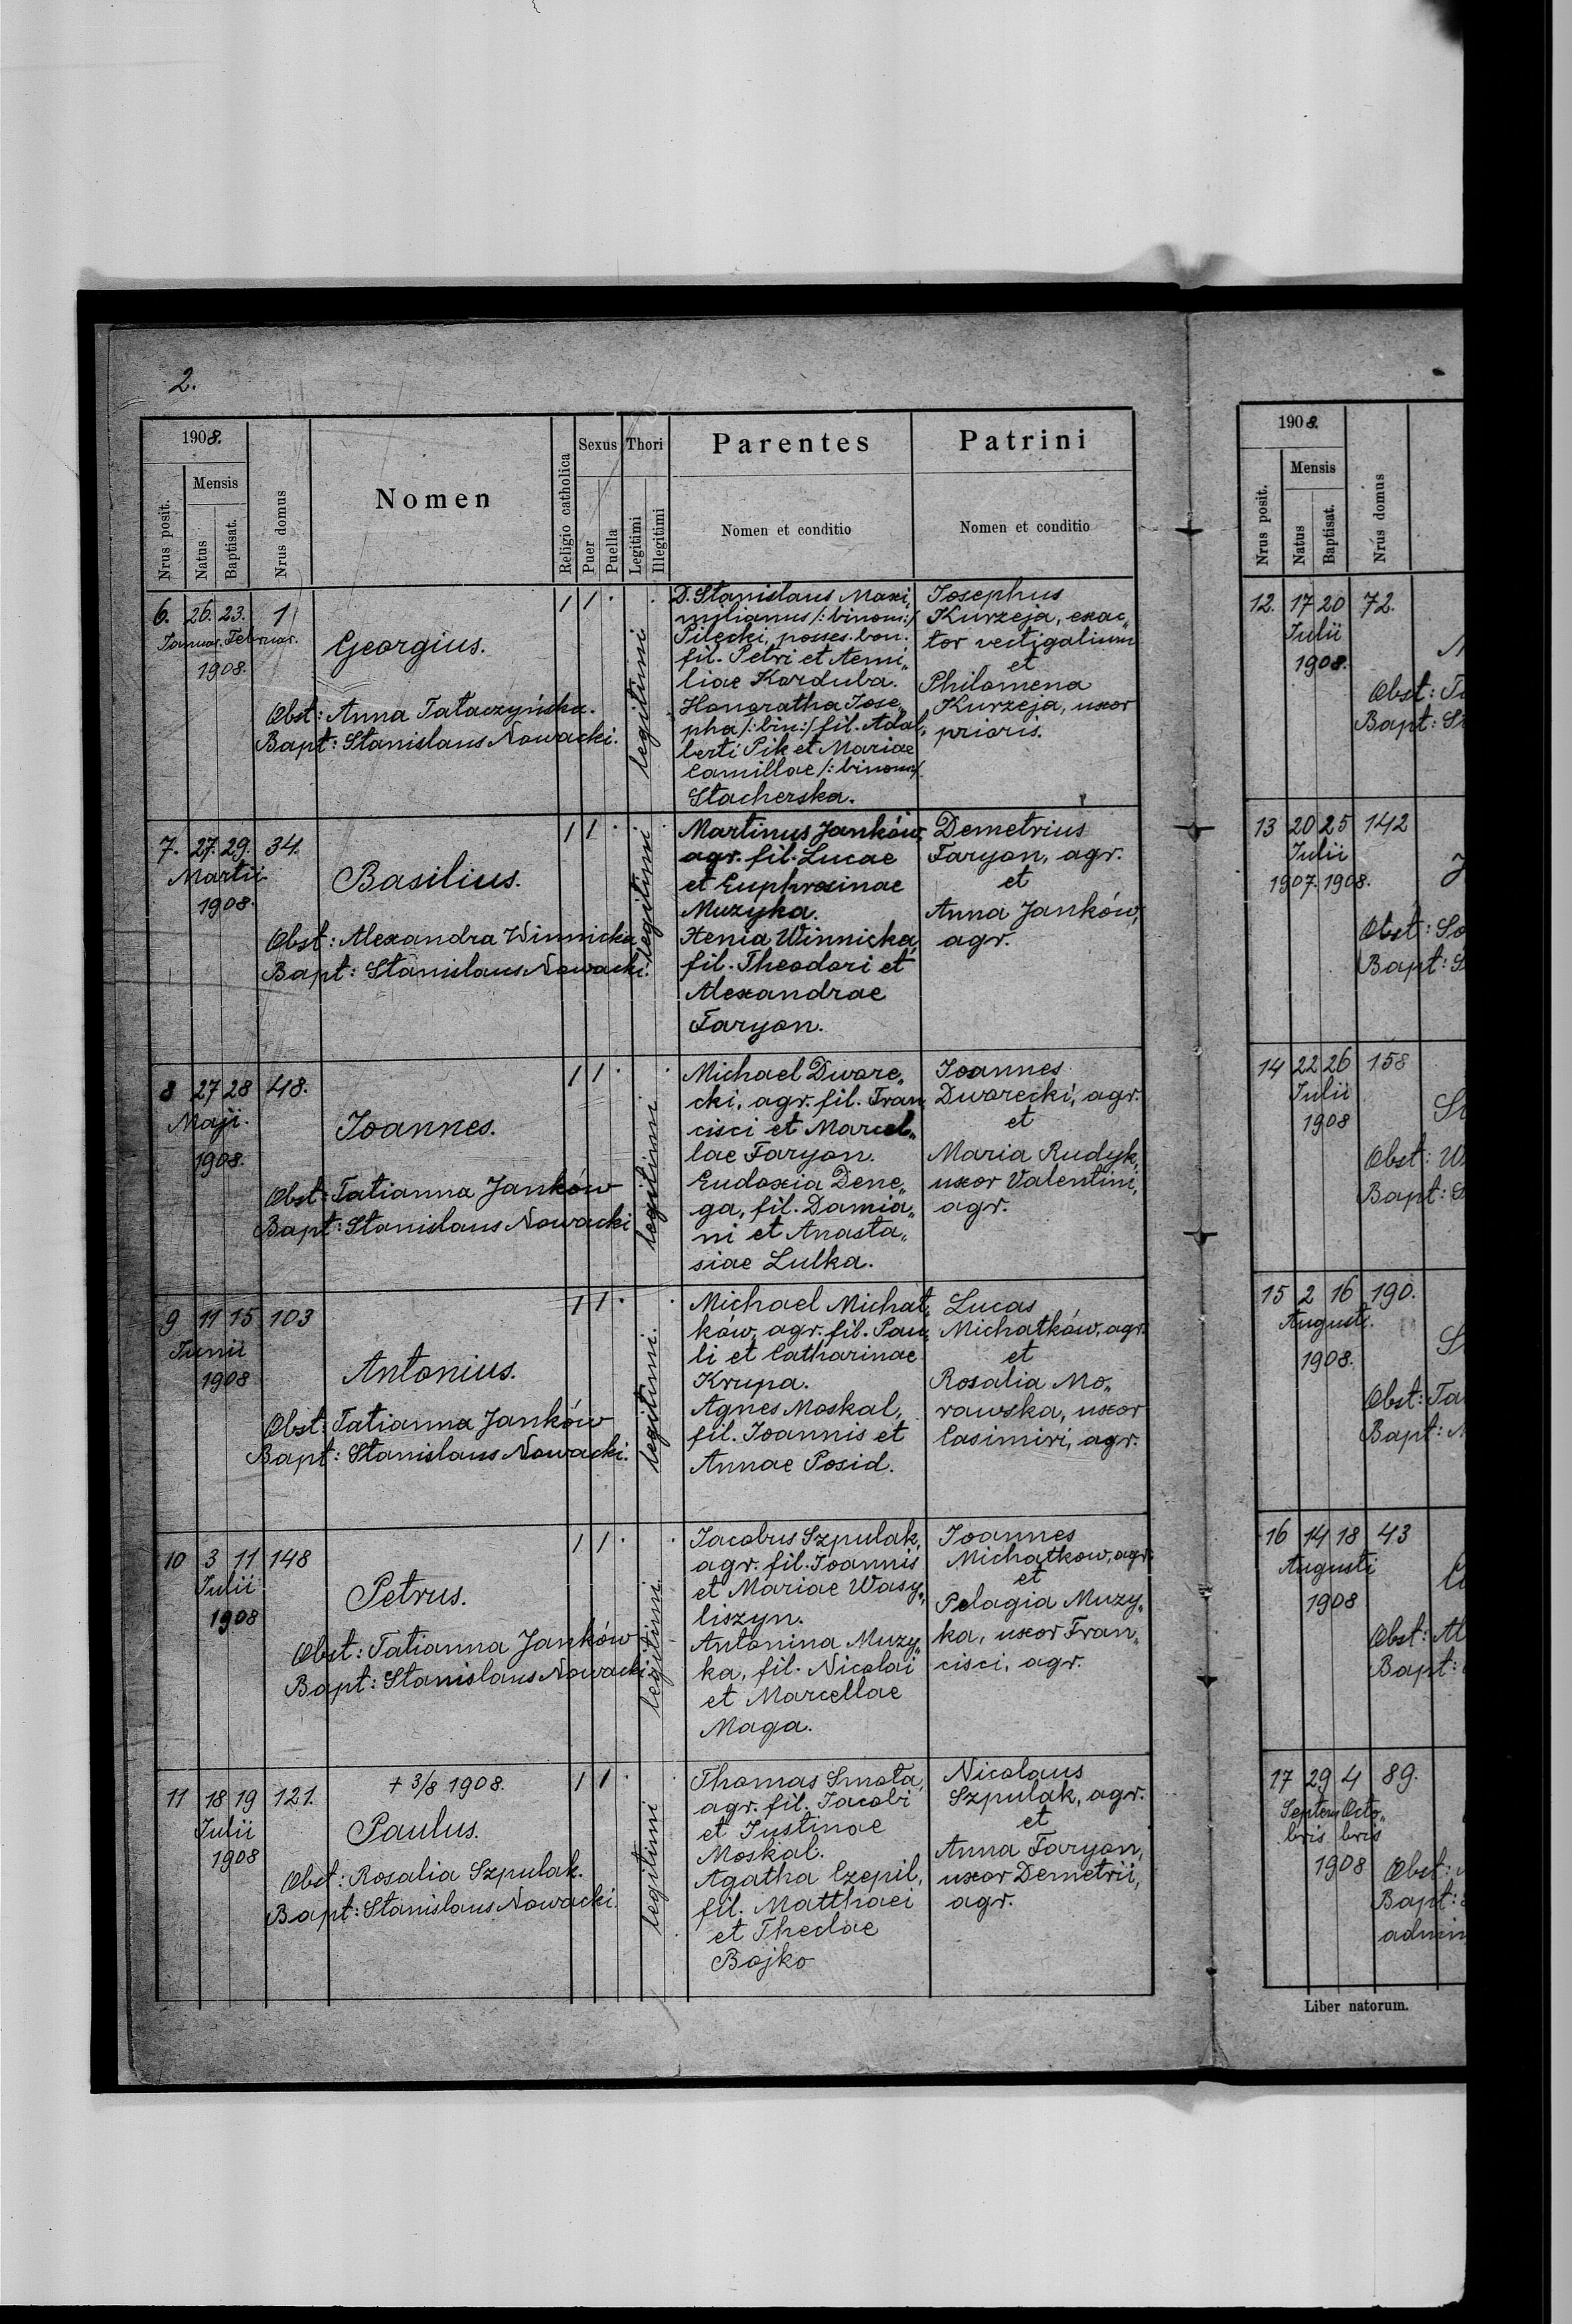 2.
1908.
Nrus posit.
Mensis
Natus
Baptisat.
Nrus domus
Nomen
Religio catholica
Sexus
Puer
Puella
Thori
Legitimi
Illegitimi
Parentes
Nomen et conditio
Patrini
Nomen et conditio
6. 26. 23. 1
Januar. Februar.
1908.
Georgius.
Obst: Anna Tataczyńska.
Bapt: Stanislaus Nowacki.
1 1 · ·
legitimi
D. Stanislaus Maxi„
milianus /: binom:/
Pilecki, posses. bon.
fil. Petri et Aemi„
liae Korduba.
Honoratha Jose„
pha /: bin:/ fil. Adal„
berti Pik et Mariae
Camillae /: binom:/
Stacherska.
Josephus
Kurzeja, exac„
tor vectigalium
et
Philomena
Kurzeja, uxor
prioris.
7. 27. 29. 34.
Martii
1908.
Basilius.
Obst: Alexandra Winnicka
Bapt: Stanislaus Nowacki.
1 1 · ·
legitimi
Martinus Janków,
agr. fil. Lucae
et Euphrosinae
Muzyka.
Xenia Winnicka,
fil. Theodori et
Alexandrae
Faryon.
Demetrius
Faryon, agr.
et
Anna Janków,
agr.
8 27 28 48.
Maji.
1908.
Joannes.
Obst: Tatianna Janków
Bapt: Stanislaus Nowacki
1 1 · ·
legitimi
Michael Dwore„
cki, agr. fil. Fran
cisci et Marcel„
lae Faryon.
Eudoxia Dene„
ga, fil. Damia„
ni et Anasta„
siae Lulka.
Joannes
Dworecki, agr.
et
Maria Rudyk,
uxor Valentini,
agr.
9 11 15 103
Junii
1908
Antonius.
Obst: Tatianna Janków
Bapt: Stanislaus Nowacki.
1 1 · ·
legitimi.
Michael Michat„
ków, agr. fil. Pau„
li et Catharinae
Krupa.
Agnes Moskal,
fil. Joannis et
Annae Posid.
Lucas
Michatków, agr.
et
Rosalia Mo„
rawska, uxor
Casimiri, agr.
10 3 11 148
Julii
1908
Petrus.
Obst: Tatianna Janków
Bapt: Stanislaus Nowacki
1 1 · ·
legitimi.
Jacobus Szpulak,
agr. fil. Joannis
et Mariae Wasy„
liszyn.
Antonina Muzy„
ka, fil. Nicolai
et Marcellae
Maga.
Joannes
Michatkow, agr.
et
Pelagia Muzy„
ka, uxor Fran„
cisci, agr.
11 18 19 121.
Julii
1908
+ 3/8 1908.
Paulus.
Obst: Rosalia Szpulak.
Bapt: Stanislaus Nowacki.
1 1 · ·
legitimi
Thomas Smota,
agr. fil. Jacobi
et Justinae
Moskal.
Agatha Czepil,
fil. Matthaei
et Theclae
Bojko
Nicolaus
Szpulak, agr.
et
Anna Faryon,
uxor Demetrii,
agr.
1908.
Nrus posit.
Mensis
Natus
Baptisat.
Nrus domus
12. 17 20 72.
Julii
1908.
Obst: Ta
Bapt: St
13 20 25 142
Julii
1907. 1908.
J
Obst: So
Bapt: S
14 22 26 158
Julii
1908
St
Obst: W
Bapt: S
15 2 16 190.
Augusti.
1908.
S
Obst: Ta
Bapt:
16 14 18 43
Augusti
1908
Obst: Al
Bapt:
17 29 4 89.
Septem Octo„
bris bris
1908
Obst:
Bapt:
admin
Liber natorum.